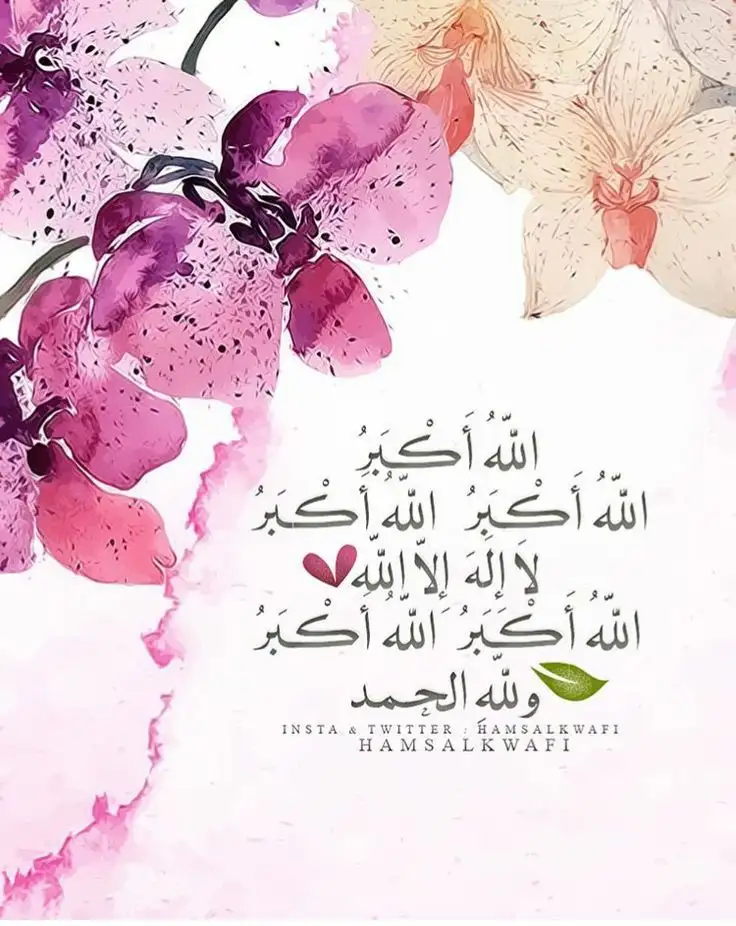 اللَّهُ أَكْبَرُ
اللَّهُ أَكْبَرُ اللَّهُ أَكْبَرُ
لَا إِلَهَ إِلَّا اللَّه
اللَّهُ أَكْبَرُ اللَّهُ أَكْبَرُ
وللَّهِ الحمد
INSTA & TWITTER : HAMSALKWAFI
HAMSALKWAFI